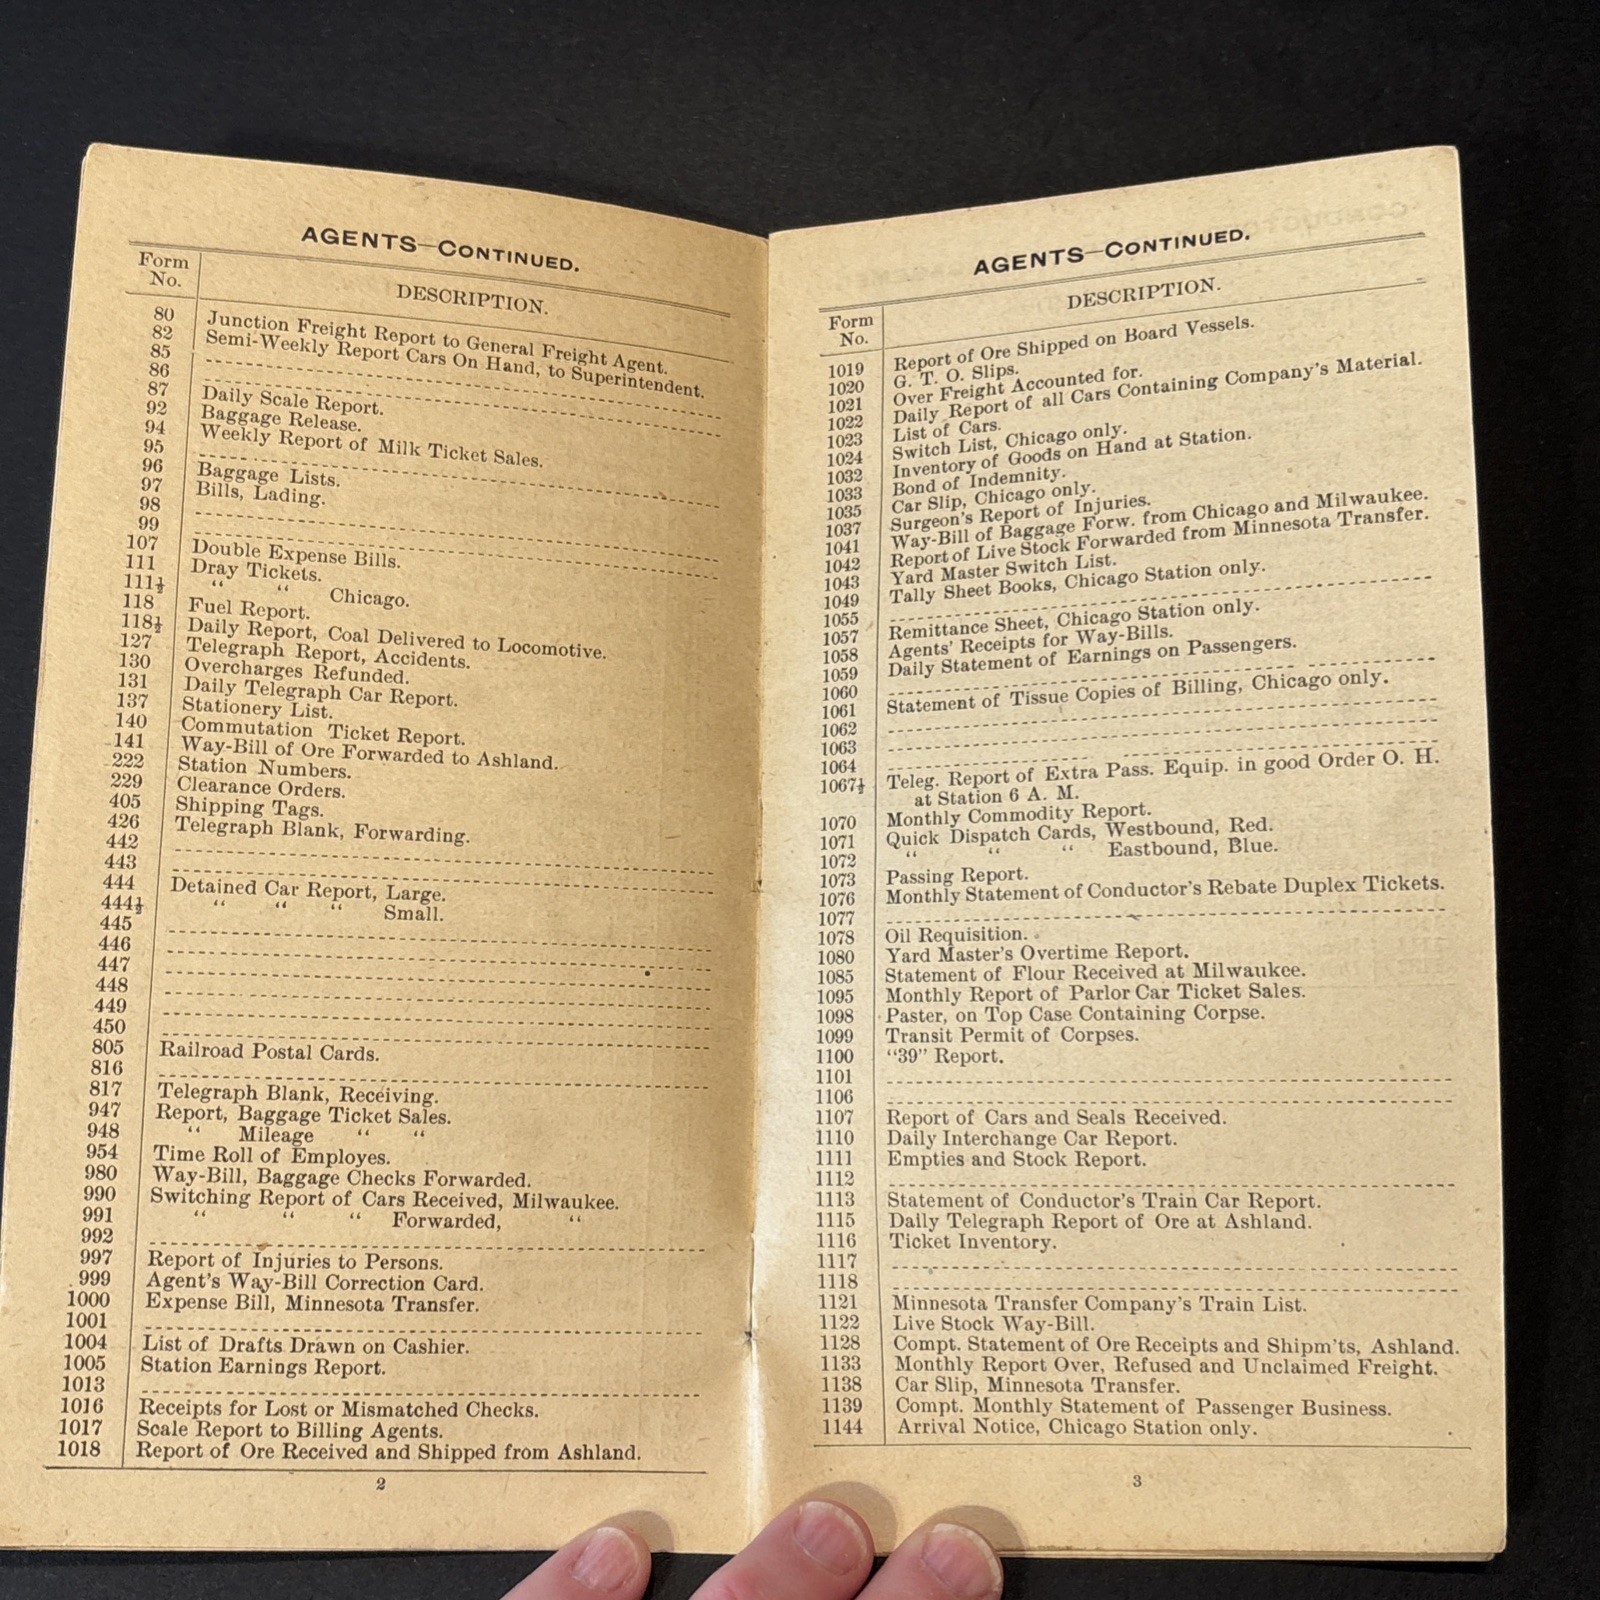 AGENTS—CONTINUED.
Form No.
DESCRIPTION.
80 Junction Freight Report to General Freight Agent.
82 Semi-Weekly Report Cars On Hand, to Superintendent.
85
86
87 Daily Scale Report.
92 Baggage Release.
94 Weekly Report of Milk Ticket Sales.
95
96 Baggage Lists.
97 Bills, Lading.
98
99
107 Double Expense Bills.
111 Dray Tickets.
111½ “ “ Chicago.
118 Fuel Report.
118½ Daily Report, Coal Delivered to Locomotive.
127 Telegraph Report, Accidents.
130 Overcharges Refunded.
131 Daily Telegraph Car Report.
137 Stationery List.
140 Commutation Ticket Report.
141 Way-Bill of Ore Forwarded to Ashland.
222 Station Numbers.
229 Clearance Orders.
405 Shipping Tags.
426 Telegraph Blank, Forwarding.
442
443
444 Detained Car Report, Large.
444½ “ “ “ Small.
445
446
447
448
449
450
805 Railroad Postal Cards.
816
817 Telegraph Blank, Receiving.
947 Report, Baggage Ticket Sales.
948 “ Mileage “ “
954 Time Roll of Employes.
980 Way-Bill, Baggage Checks Forwarded.
990 Switching Report of Cars Received, Milwaukee.
991 “ “ “ Forwarded, “
992
997 Report of Injuries to Persons.
999 Agent's Way-Bill Correction Card.
1000 Expense Bill, Minnesota Transfer.
1001
1004 List of Drafts Drawn on Cashier.
1005 Station Earnings Report.
1013
1016 Receipts for Lost or Mismatched Checks.
1017 Scale Report to Billing Agents.
1018 Report of Ore Received and Shipped from Ashland.
2
AGENTS—CONTINUED.
Form No.
DESCRIPTION.
1019 Report of Ore Shipped on Board Vessels.
1020 G. T. O. Slips.
1021 Over Freight Accounted for.
1022 Daily Report of all Cars Containing Company's Material.
1023 List of Cars.
1024 Switch List, Chicago only.
1032 Inventory of Goods on Hand at Station.
1033 Bond of Indemnity.
1035 Car Slip, Chicago only.
1037 Surgeon's Report of Injuries.
1041 Way-Bill of Baggage Forw. from Chicago and Milwaukee.
1042 Report of Live Stock Forwarded from Minnesota Transfer.
1043 Yard Master Switch List.
1049 Tally Sheet Books, Chicago Station only.
1055
1057 Remittance Sheet, Chicago Station only.
1058 Agents' Receipts for Way-Bills.
1059 Daily Statement of Earnings on Passengers.
1060
1061 Statement of Tissue Copies of Billing, Chicago only.
1062
1063
1064
1067½ Teleg. Report of Extra Pass. Equip. in good Order O. H.
at Station 6 A. M.
1070 Monthly Commodity Report.
1071 Quick Dispatch Cards, Westbound, Red.
1072 “ “ “ Eastbound, Blue.
1073 Passing Report.
1076 Monthly Statement of Conductor's Rebate Duplex Tickets.
1077
1078 Oil Requisition.
1080 Yard Master's Overtime Report.
1085 Statement of Flour Received at Milwaukee.
1095 Monthly Report of Parlor Car Ticket Sales.
1098 Paster, on Top Case Containing Corpse.
1099 Transit Permit of Corpses.
1100 “39” Report.
1101
1106
1107 Report of Cars and Seals Received.
1110 Daily Interchange Car Report.
1111 Empties and Stock Report.
1112
1113 Statement of Conductor's Train Car Report.
1115 Daily Telegraph Report of Ore at Ashland.
1116 Ticket Inventory.
1117
1118
1121 Minnesota Transfer Company's Train List.
1122 Live Stock Way-Bill.
1128 Compt. Statement of Ore Receipts and Shipm'ts, Ashland.
1133 Monthly Report Over, Refused and Unclaimed Freight.
1138 Car Slip, Minnesota Transfer.
1139 Compt. Monthly Statement of Passenger Business.
1144 Arrival Notice, Chicago Station only.
3